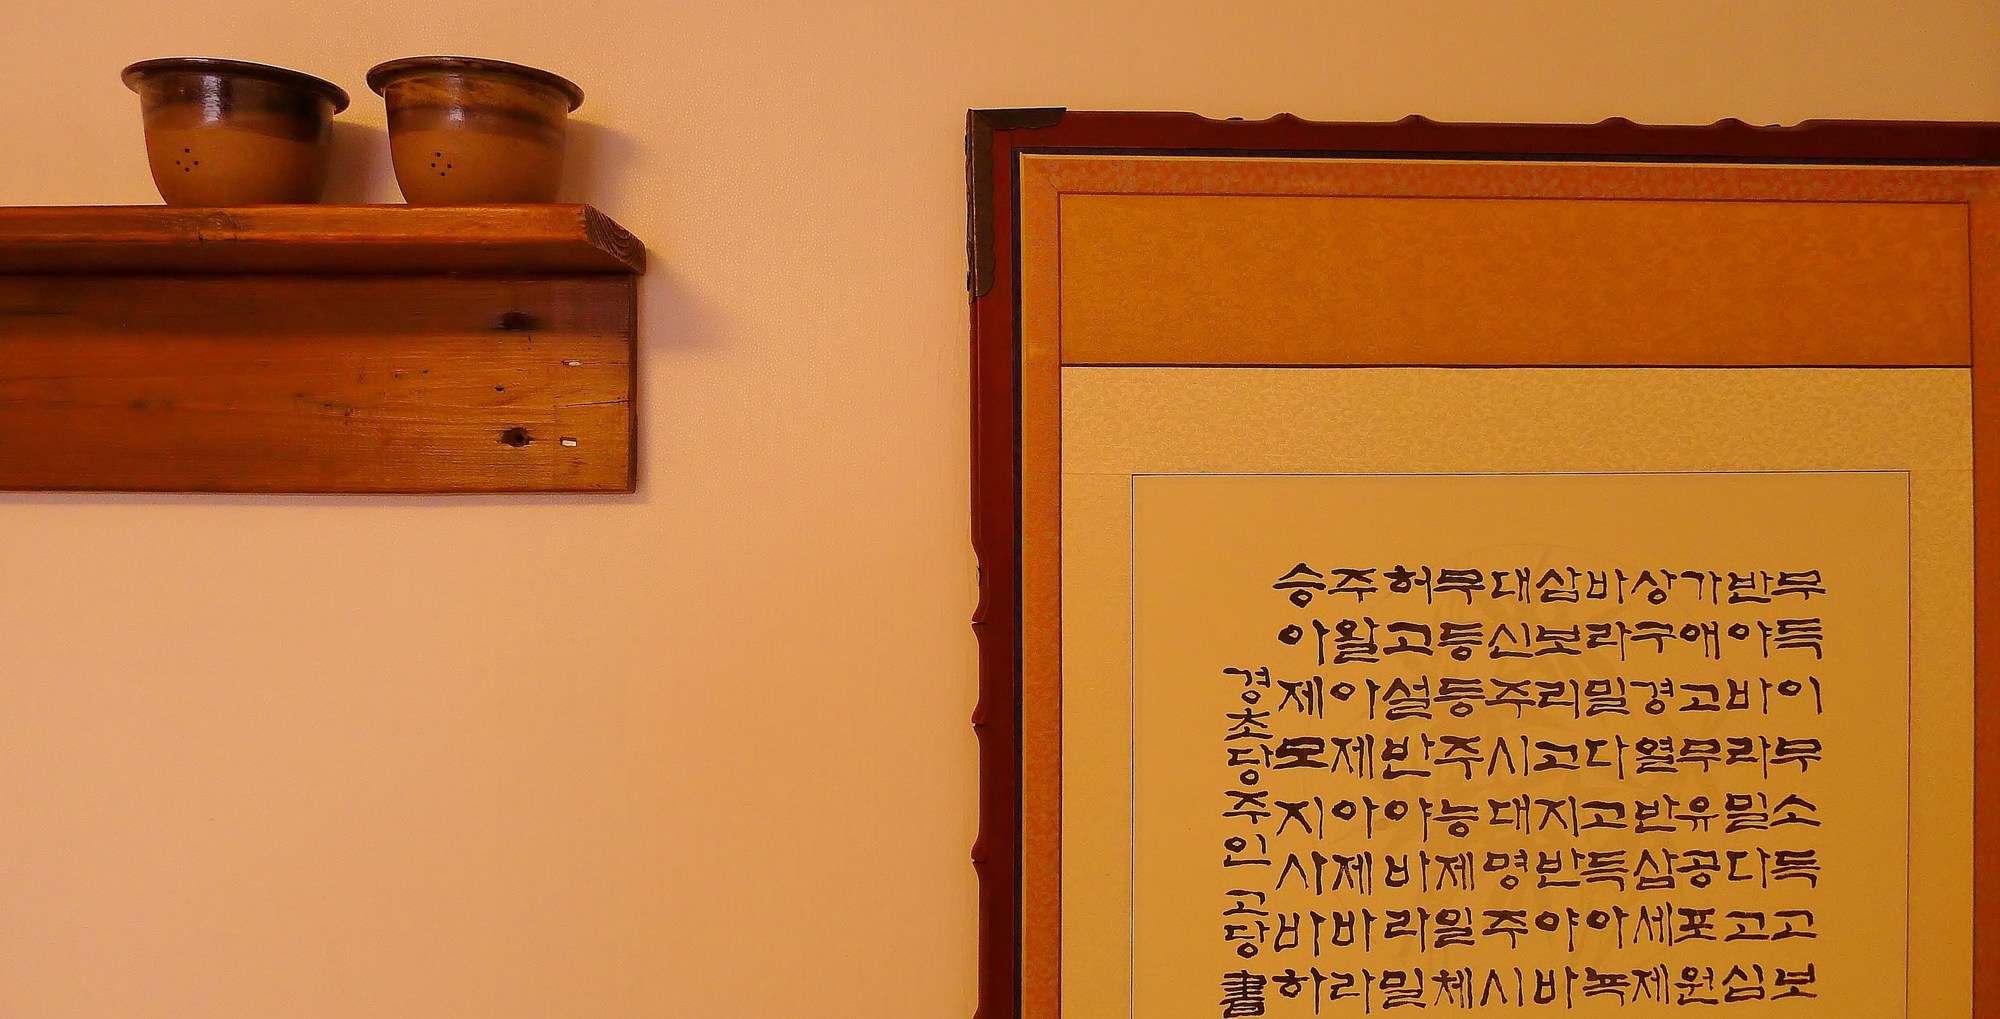 무득이무소득고보
반야바라밀다고심
가애고무유공포원
상구경열반삼세제
바라밀다고득아뇩
삼보리고지반야바
대신주시대명주시
무등등주능제일체
허고설반야바라밀
주왈아제아제바라
승아제모지사바하
경초당주인고당書